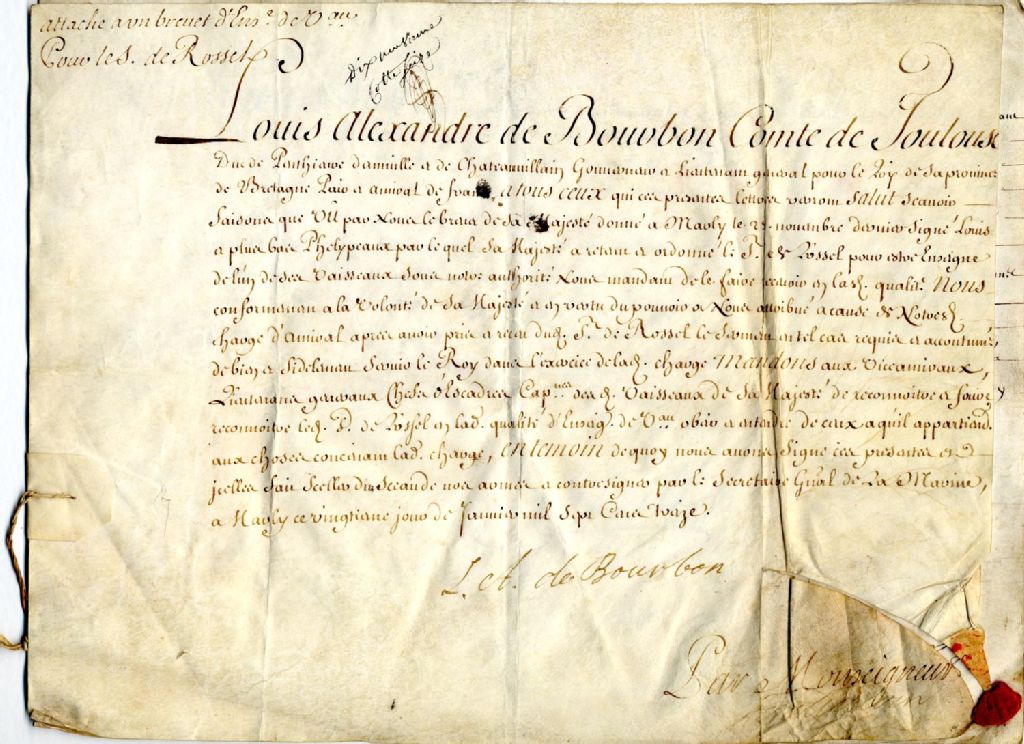 attache a un brevet d'Ens.e de V.au
Pour le S. de Rossel
Dix neuvieme
Cotte
Louis Alexandre de Bourbon Comte de Toulouse
Duc de Penthievre d'Amville et de Chateauvillain Gouverneur et Lieutenant general pour le Roy de sa province
de Bretagne Pair et amiral de france, a tous ceux qui ces presentes lettres verront Salut Scavoir
faisons que Vu par Nous le brevet de Sa Majesté donné a Marly le novembre dernier Signé Louis
et plus bas Phelypeaux par le quel Sa Majesté a retenu et ordonné le S.r de Rossel pour estre Enseigne
de l'un de ses Vaisseaux sous notre authorité Nous mandant de le faire recevoir en lad. qualité Nous
conformement a la Volonté de Sa Majesté et en vertu du pouvoir a Nous attribué a cause de Notred.
charge d'Amiral apres avoir pris et receu dud. S.r de Rossel le serment en tel cas requis et accoutumé
de bien et fidelement Servir le Roy dans l'exercice de lad. charge Mandons aux Viceamiraux,
Lieutenans generaux Chefs d'Escadres Cap.nes des d. Vaisseaux de Sa Majesté de reconnoitre et faire
reconnoitre led. S. de Rossel en lad. qualité d'Enseig. de V.au obeir et entendre de ceux a qu'il appartiend.
aux choses concernant lad. charge, en temoin de quoy nous avons Signé ces presentes et
icelles fait Sceller du Sceau de nos armes et contresigner par le Secretaire Gnal de La Marine,
a Marly ce vingtieme jour de Janvier mil Sept Cens Treize.
L. A. de Bourbon
Par Monseigneur